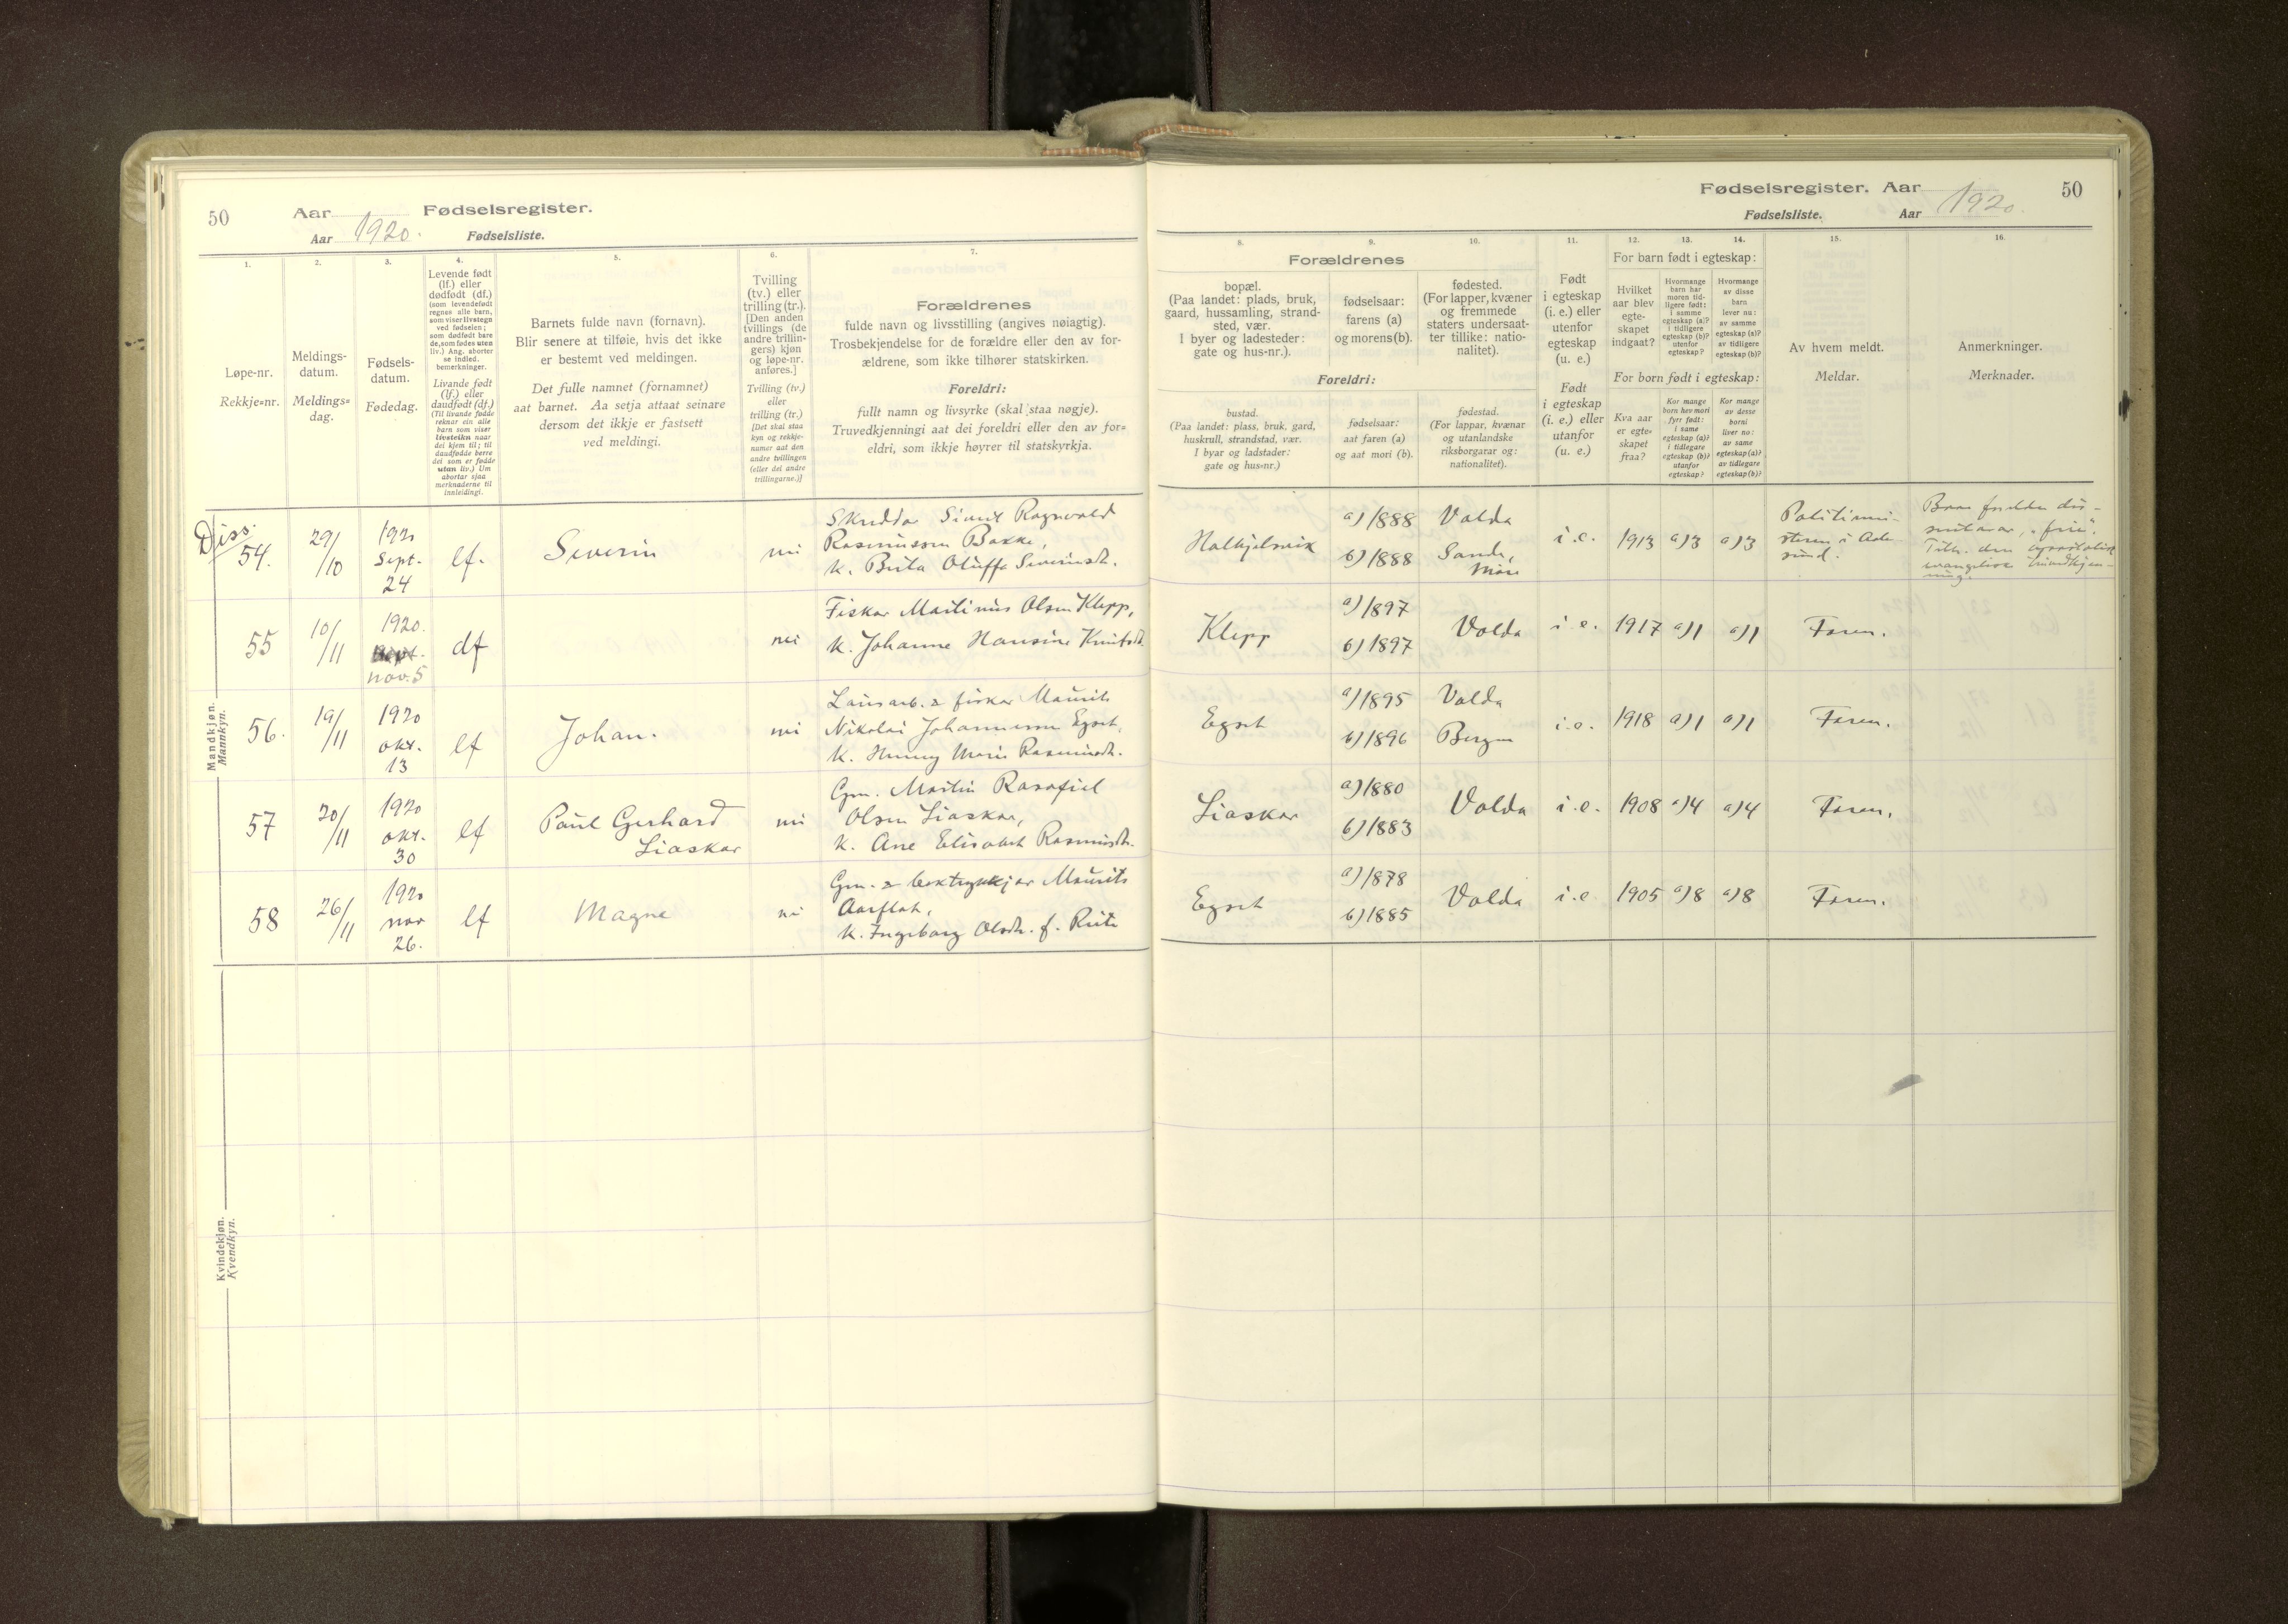 50
Aar
Fødselsregister.
Aar 1920.
Fødselsliste.
1.
2.
3.
4.
5.
6.
7.
Løpe-nr.
Rekkje=nr.
Meldings-
datum.
Meldings=
dag.
Fødsels-
datum.
Fødedag.
Levende født
(lf.) eller
dødfødt (df.)
(som levendefødt
regnes alle barn,
som viser livstegn
ved fødselen;
som dødfødt bare
de, som fødes uten
liv.) Ang. aborter
se indled.
bemerkninger.
Livande født
(lf.) eller
daudfødt (df.)
(Til livande fødde
reknar ein alle
barn som viser
livsteikn naar
dei kjem til; til
daudfødde berre
dei som er fødde
utan liv.) Um
abortar sjaa
merknaderne til
innleidingi.
Barnets fulde navn (fornavn).
Blir senere at tilføie, hvis det ikke
er bestemt ved meldingen.
Det fulle namnet (fornamnet)
aat barnet. Aa setja attaat seinare
dersom det ikkje er fastsett
ved meldingi.
Tvilling
(tv.) eller
trilling (tr.).
[Den anden
tvillings (de
andre trillin-
gers) kjøn
og løpe-nr.
anføres.]
Tvilling (tv.)
eller
trilling (tr.)
[Det skal staa
kyn og rekkje-
numer aat den
andre tvillingen
(eller dei andre
trillingarne.)]
Forældrenes
fulde navn og livsstilling (angives nøiagtig).
Trosbekjendelse for de forældre eller den av for-
ældrene, som ikke tilhører statskirken.
Foreldri:
fullt namn og livsyrke (skal staa nøgje).
Truvedkjenningi aat dei foreldri eller den av for=
eldri, som ikkje høyrer til statskyrkja.
Mandkjøn.
Mannkyn.
Diss.
54.
29/10
1920
Sept.
24
lf.
Severin
nei
Skreddar Sivert Ragnvald
Rasmussen Bakke,
k. Brita Oluffa Severinsdt.
55
10/11
1920.
Sept.
nov. 5
df
nei
Fiskar Martinus Olsen Klepp,
k. Johanne Hansine Knutsdt.
56.
19/11
1920
okt.
13
lf
Johan.
nei
Lausarb. & fiskar Maurits
Nikolai Johannessen Egset,
k. Marie Rasmusdt.
57
20/11
1920
okt.
30
lf
Paul Gerhard
Liaskar
nei
Gm. Martin Rasafiel
Olsen Liaskar,
k. Ane Elisabet Rasmusdt.
58
26/11
1920
nov
26.
lf
Magne
nei
Gm. & boktrykkjar Maurits
Aarflot,
k. Ingeborg Olsdt. f. Riste
Kvindekjøn.
Kvendkyn.
Fødselsregister. Aar
50
Fødselsliste.
Aar 1920.
8.
9.
10.
11.
12.
13.
14.
15.
16.
Forældrenes
bopæl.
(Paa landet: plads, bruk,
gaard, hussamling, strand-
sted, vær.
I byer og ladesteder:
gate og hus-nr.).
fødselsaar:
farens (a)
og morens (b).
fødested.
(For lapper, kvæner
og fremmede
staters undersaat-
ter tillike: natio-
nalitet).
Foreldri:
bustad.
(Paa landet: plass, bruk, gard,
huskrull, strandstad, vær.
I byar og ladstader:
gate og hus=nr.)
fødselsaar:
aat faren (a)
og aat mori (b).
fødestad.
(For lappar, kvænar
og utanlandske
riksborgarar og:
nationalitet).
Født
i egteskap
(i. e.) eller
utenfor
egteskap
(u. e.)
Født
i egteskap
(i. e.) eller
utanfor
(u. e.)
For barn født i egteskap:
Hvilket
aar blev
egte-
skapet
indgaat?
Hvormange
barn har
moren tid-
ligere født:
i samme
egteskap (a)?
i tidligere
egteskap (b)?
utenfor
egteskap?
Hvormange
av disse
barn
lever nu:
av samme
egteskap (a)?
av tidligere
egteskap (b)?
For born født i egteskap:
Kva aar
er egte-
skapet
fraa?
Kor mange
born hev mori
fyrr født:
i same
egteskap (a)?
i tidlegare
egteskap (b)?
utanfor
egteskap?
Kor mange
av desse
borni
liver no:
av same
egteskap (a)?
av tidlegare
egteskap (b)?
Av hvem meldt.
Meldar.
Anmerkninger.
Merknader.
Halkjelsvik
a) 1888
b) 1888
Volda
Sande,
Møre
i. e.
1913
a) 3
a) 3
Politimei-
steren i Aale-
sund.
Klepp
a) 1897
b) 1897
Volda
i. e.
1917
a) 1
a) 1
Faren.
Egset
a) 1895
b) 1896
Volda
Bergen
i. e.
1918
a) 1
a) 1
Faren.
Liaskar
a) 1880
b) 1883
Volda
i. e.
1908
a) 4
a) 4
Faren.
Egset
a) 1878
b) 1885
Volda
i. e.
1905
a) 8
a) 8
Faren.